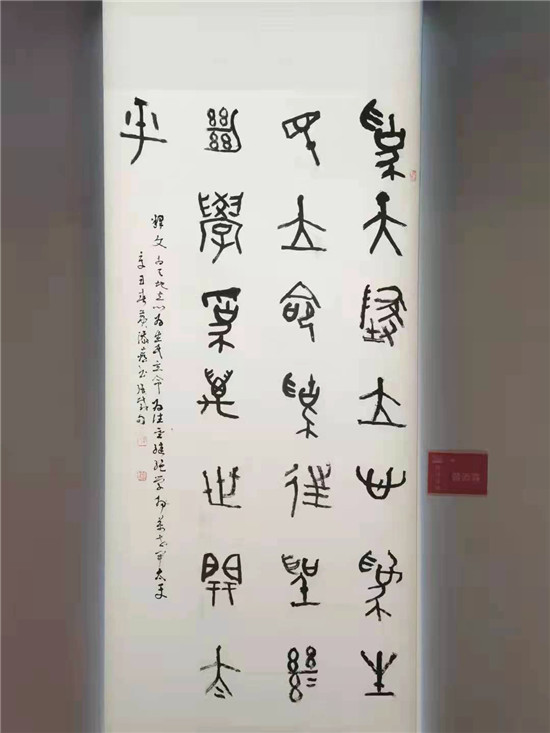 為天地立心為生
民立命為往聖繼
絕學為萬世開太
平
釋文 為天地立心為生民立命為往聖繼絕學為萬世開太平
辛丑春